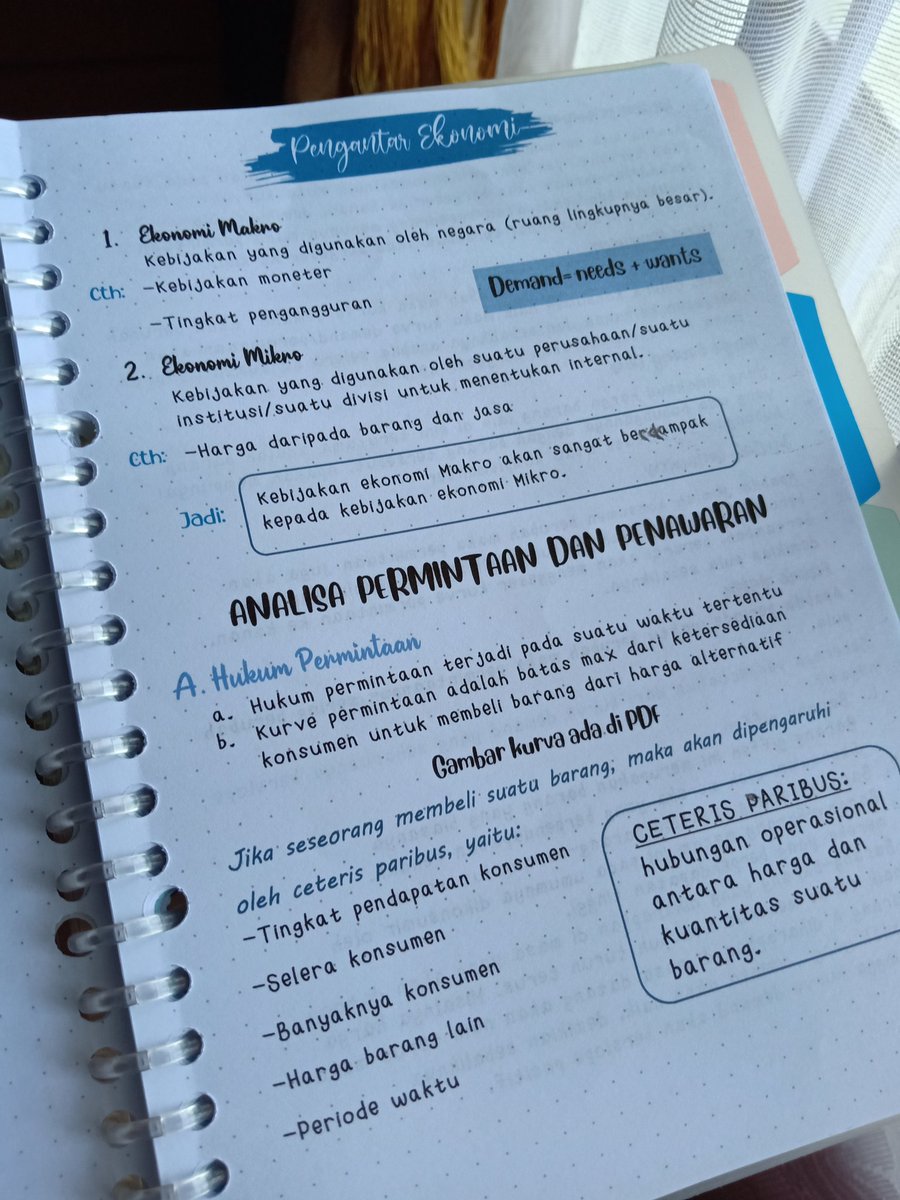 Pengantar Ekonomi
1. Ekonomi Makro
Kebijakan yang digunakan oleh negara (ruang lingkupnya besar).
Cth: -Kebijakan moneter
-Tingkat pengangguran
Demand= needs + wants
2. Ekonomi Mikro
Kebijakan yang digunakan oleh suatu perusahaan/suatu
institusi/suatu divisi untuk menentukan internal.
Cth: -Harga daripada barang dan jasa
Jadi:
Kebijakan ekonomi Makro akan sangat berdampak
kepada kebijakan ekonomi Mikro.
ANALISA PERMINTAAN DAN PENAWARAN
A. Hukum Permintaan
a. Hukum permintaan terjadi pada suatu waktu tertentu
b. Kurve permintaan adalah batas max dari ketersediaan
konsumen untuk membeli barang dari harga alternatif
Gambar kurva ada di PDF
Jika seseorang membeli suatu barang, maka akan dipengaruhi
oleh ceteris paribus, yaitu:
-Tingkat pendapatan konsumen
-Selera konsumen
-Banyaknya konsumen
-Harga barang lain
-Periode waktu
CETERIS PARIBUS:
hubungan operasional
antara harga dan
kuantitas suatu
barang.